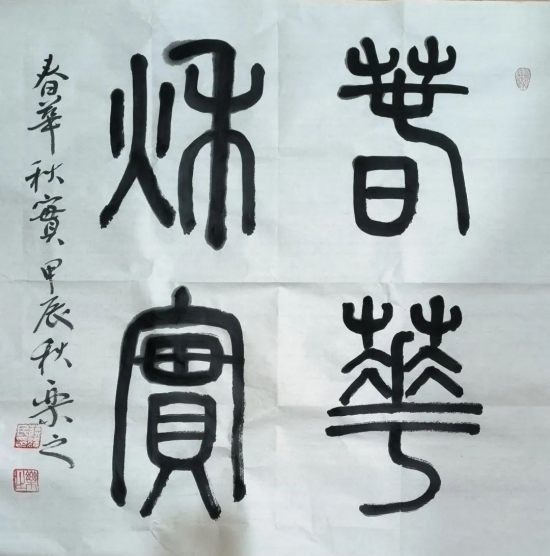 春華
秋實
春華秋實甲辰秋樂之